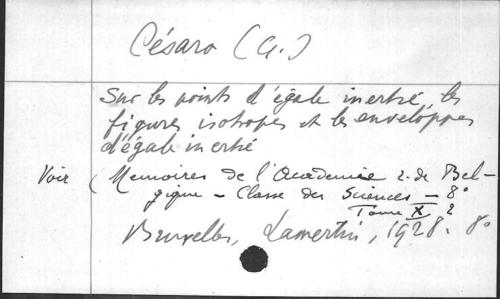 Césaro (G.)
Sur les points d'égale inertie, les
figures isotropes et les enveloppes
d'égale inertie
Voir (Memoires de l'Academie r. de Bel-
gique - Classe des Sciences - 8°
Tome X 2
Bruxelles, Lamertin, 1928. 8°